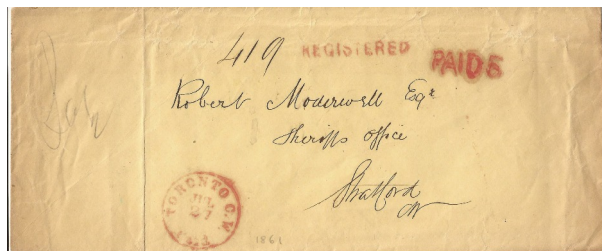 419 REGISTERED PAID 5
Robert Moderwell Esqr
Sheriffs office
Stratford
CW
TORONTO C.W.
JUL
27
1861